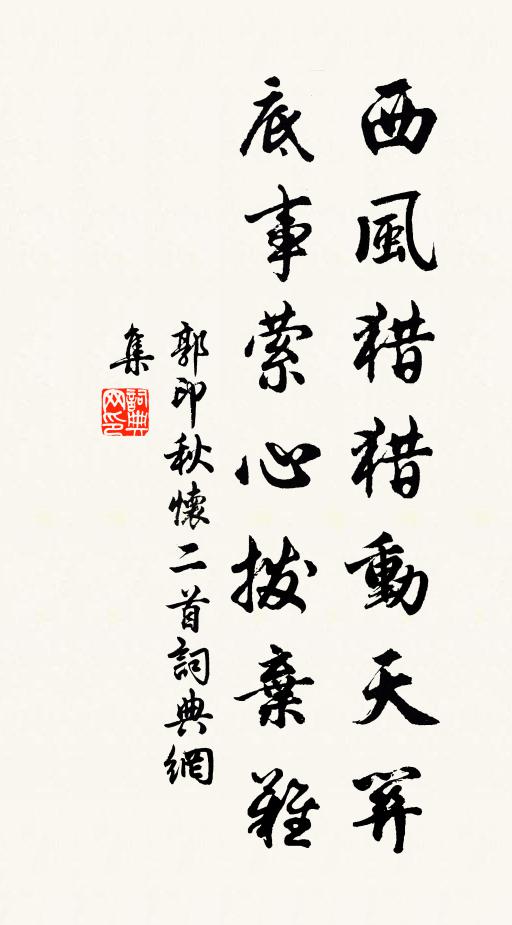 西風猎猎動天關
底事縈心撥棄難
郭印秋懷二首詞典網
集
詞典
网印